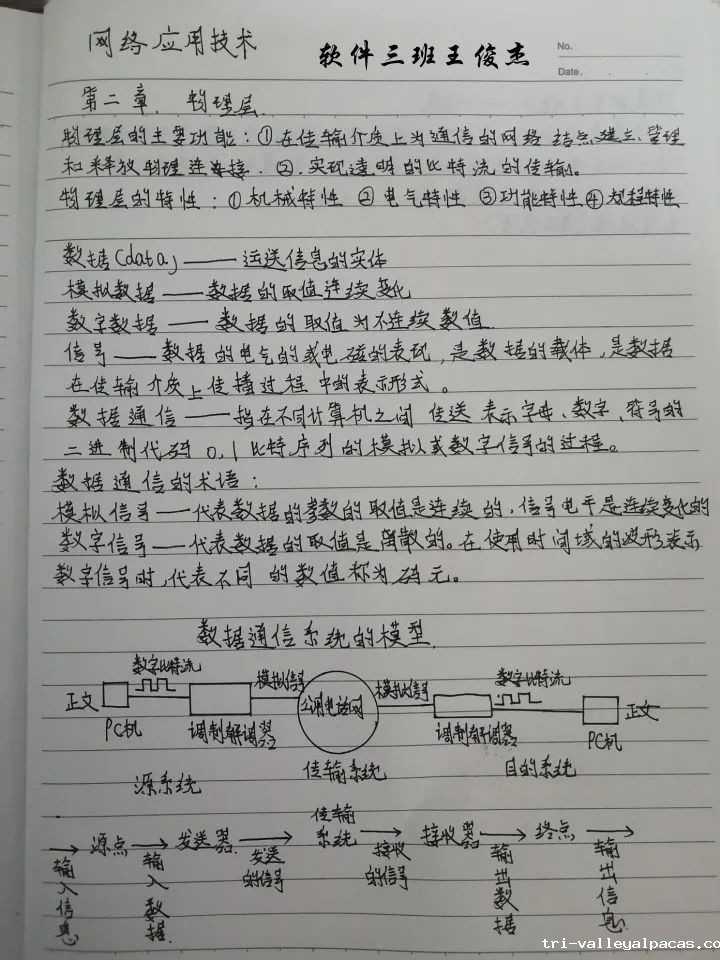 网络应用技术
软件三班王俊杰
No.
Date.
第二章. 物理层.
物理层的主要功能:①在传输介质上为通信的网络结点建立、管理
和释放物理连接.②.实现透明的比特流的传输。
物理层的特性:①机械特性 ②电气特性 ③功能特性④规程特性
数据(data)——运送信息的实体
模拟数据——数据的取值连续变化
数字数据——数据的取值为不连续数值.
信号——数据的电气的或电磁的表现,是数据的载体,是数据
在传输介质上传播过程中的表示形式。
数据通信——指在不同计算机之间传送表示字母、数字、符号的
二进制代码0,1比特序列的模拟或数字信号的过程。
数据通信的术语:
模拟信号——代表数据的参数的取值是连续的,信号电平是连续变化的
数字信号——代表数据的取值是离散的。在使用时间域的波形表示
数字信号时,代表不同的数值称为码元。
数据通信系统的模型.
数字比特流 模拟信号 模拟信号 数字比特流
正文 公用电话网 正文
PC机 调制解调器 调制解调器 PC机
源系统 传输系统 目的系统
源点 发送器 传输系统 接收器 终点
输入信息 输入数据. 发送的信号 接收的信号 输出数据 输出信息.
tri-valleyalpacas.co